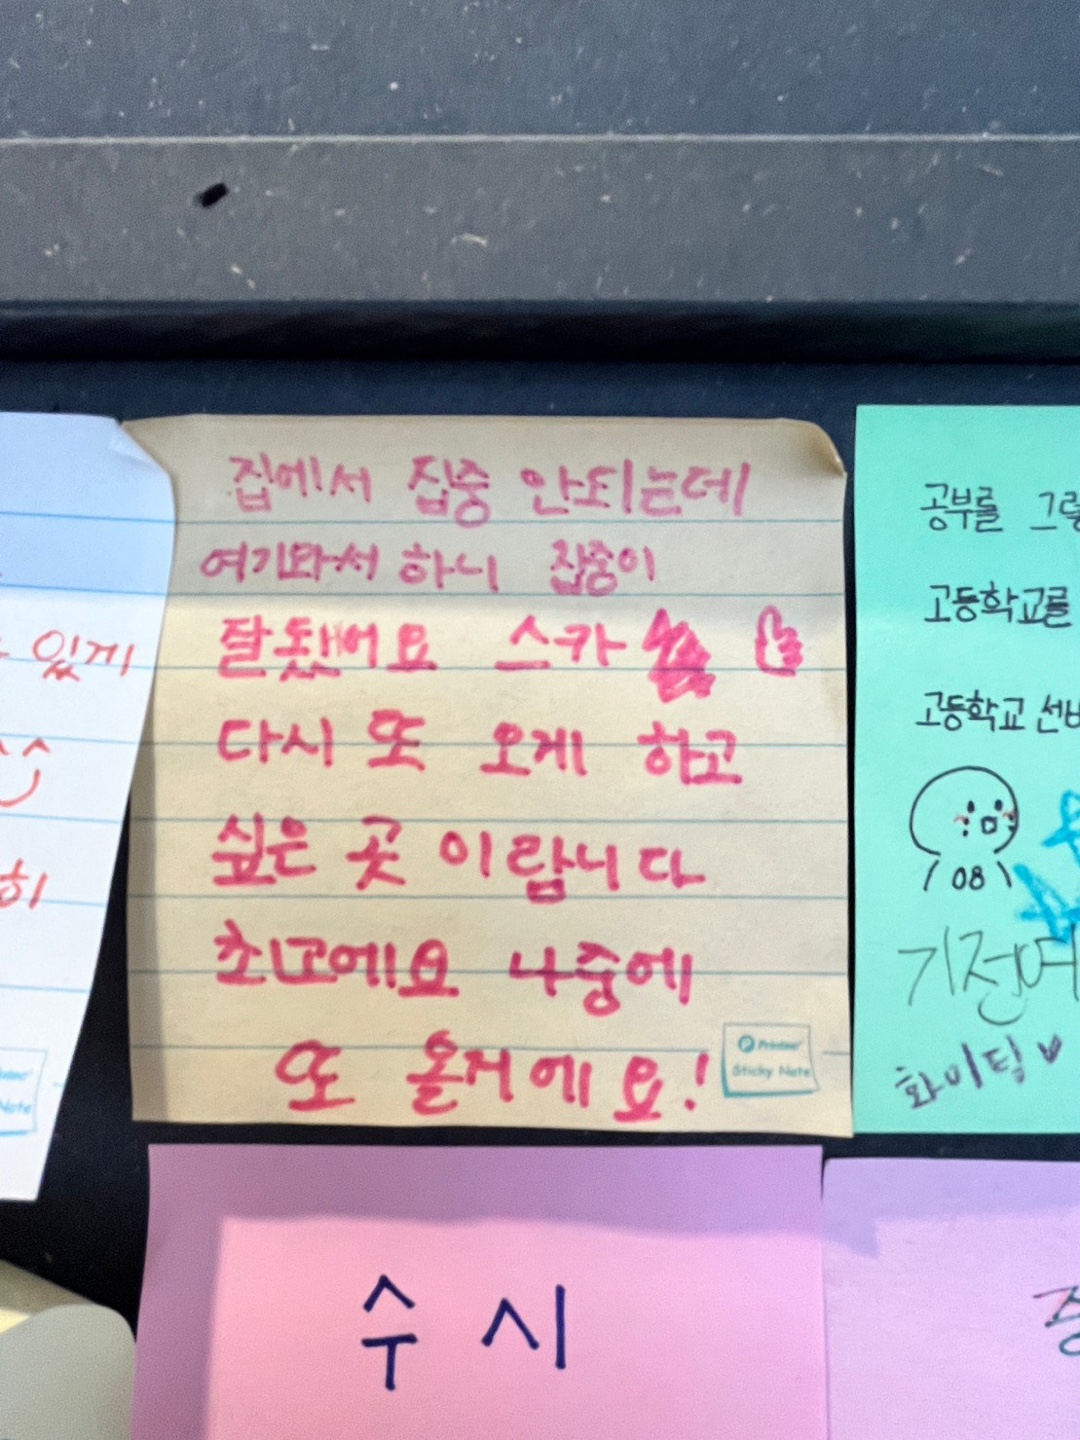 집에서 집중 안되는데
여기와서 하니 집중이
잘됐어요 스카
다시 또 오게 하고
싶은 곳 이랍니다
최고에요 나중에
또 올거에요!
Printec
Sticky Note
있게
히
Note
공부를 그렇
고등학교를
고등학교 선배
08
기전여
화이팅♥
수시